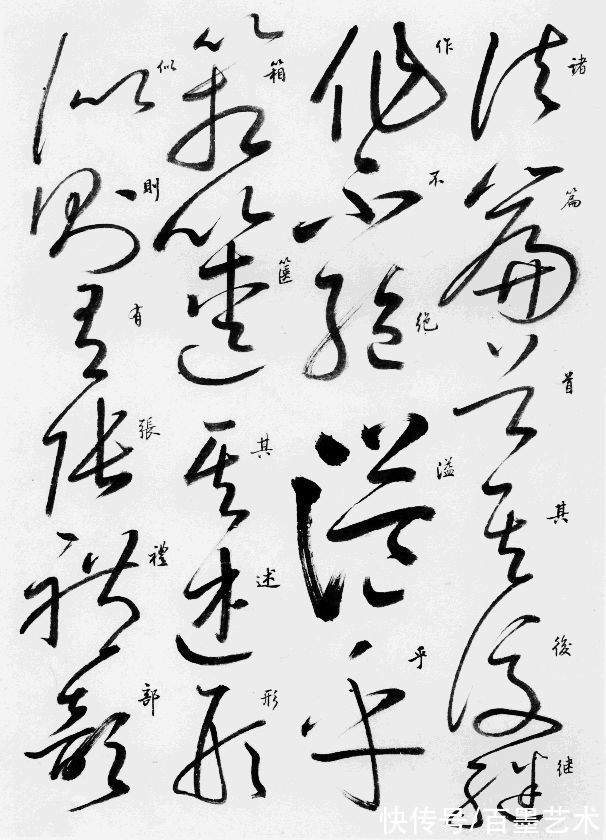 諸篇首其後继
作不絶溢乎
箱篋其述形
似則有張禮部
快传号/百墨艺术